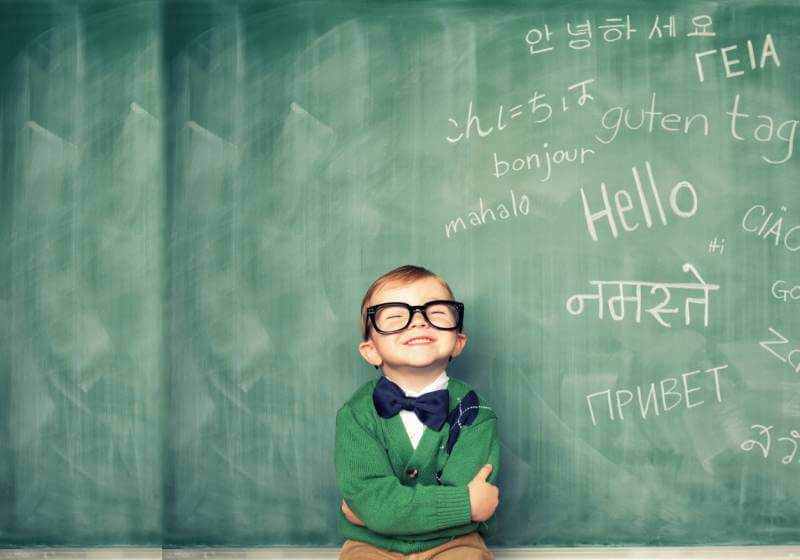 안녕하세요
ΓΕΙΑ
こんにちは
guten tag
bonjour
mahalo
Hello
CIÄO
#i
नमस्ते
ПРИВЕТ